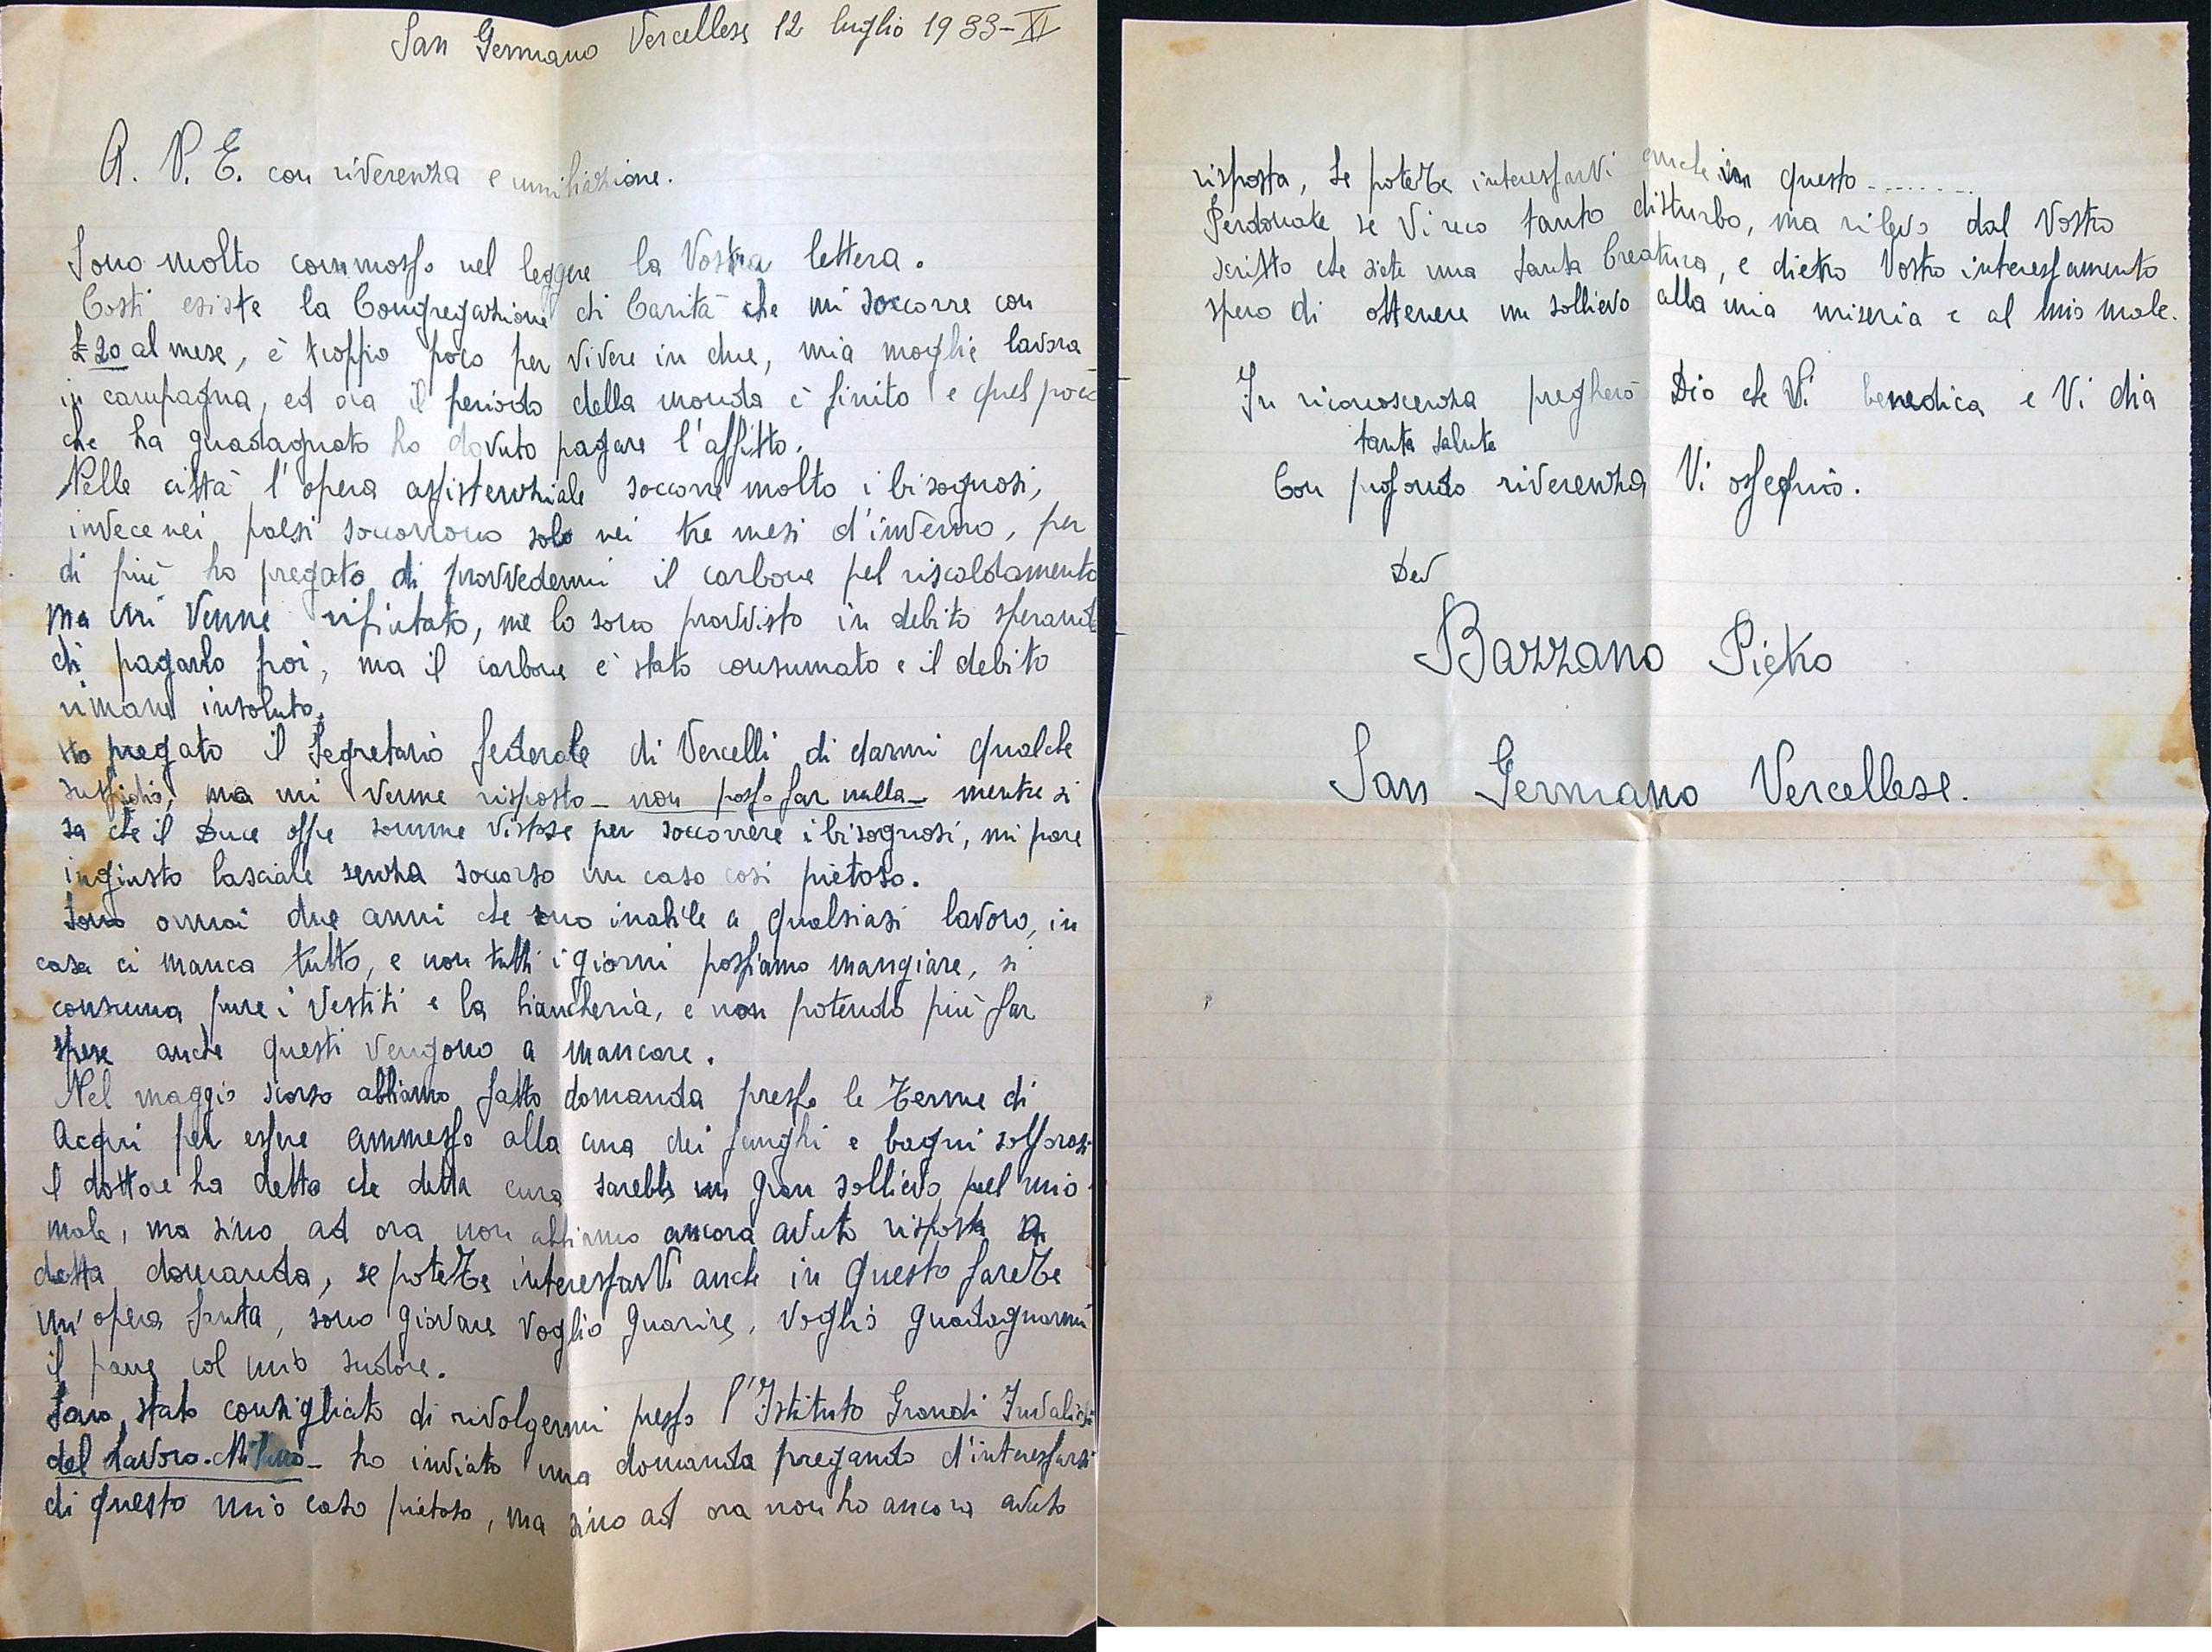 San Germano Vercellese 12 luglio 1933-XI
A. V. E. con riverenza e umiliazione.
Sono molto commosso nel leggere la Vostra lettera.
Costì esiste la Congregazione di Carità che mi soccorre con
£ 20 al mese, è troppo poco per vivere in due, mia moglie lavora
in campagna, ed ora il periodo della monda è finito e quel poco
che ha guadagnato ho dovuto pagare l'affitto.
Nelle città l'opera assistenziale soccorre molto i bisognosi,
invece nei paesi soccorrono solo nei tre mesi d'inverno, per
di più ho pregato di provvedermi il carbone pel riscaldamento
ma mi venne rifiutato, me lo sono provvisto in debito sperando
di pagarlo poi, ma il carbone è stato consumato e il debito
rimane insoluto.
Ho pregato il Segretario federale di Vercelli di darmi qualche
sussidio, ma mi venne risposto - non posso far nulla - mentre si
sa che il Duce offre somme vistose per soccorrere i bisognosi, mi pare
ingiusto lasciare senza soccorso un caso così pietoso.
Sono ormai due anni che sono inabile a qualsiasi lavoro, in
casa ci manca tutto, e non tutti i giorni possiamo mangiare, si
consuma pure i vestiti e la biancheria, e non potendo più far
spese anche questi vengono a mancare.
Nel maggio scorso abbiamo fatto domanda presso le Terme di
Acqui per essere ammesso alla cura dei fanghi e bagni solforosi
il dottore ha detto che detta cura sarebbe un gran sollievo pel mio
male, ma sino ad ora non abbiamo ancora avuto risposta di
detta domanda, se potette interessarVi anche in questo farette
un'opera santa, sono giovane voglio guarire, voglio guadagnarmi
il pane col mio sudore.
Sono stato consigliato di rivolgermi presso l'Istituto Grandi Invalidi
del Lavoro. Milano - ho inviato una domanda pregando d'interessarsi
di questo mio caso pietoso, ma sino ad ora non ho ancora avuto
risposta, se potette interessarVi anche in questo .........
Perdonate se Vi reco tanto disturbo, ma rilevo dal Vostro
scritto che siete una Santa Creatura, e dietro Vostro interessamento
spero di ottenere un sollievo alla mia miseria e al mio male.
In riconoscenza pregherò Dio che Vi benedica e Vi dia
tanta salute
Con profonda riverenza Vi ossequio.
Dev
Bazzano Pietro
San Germano Vercellese.